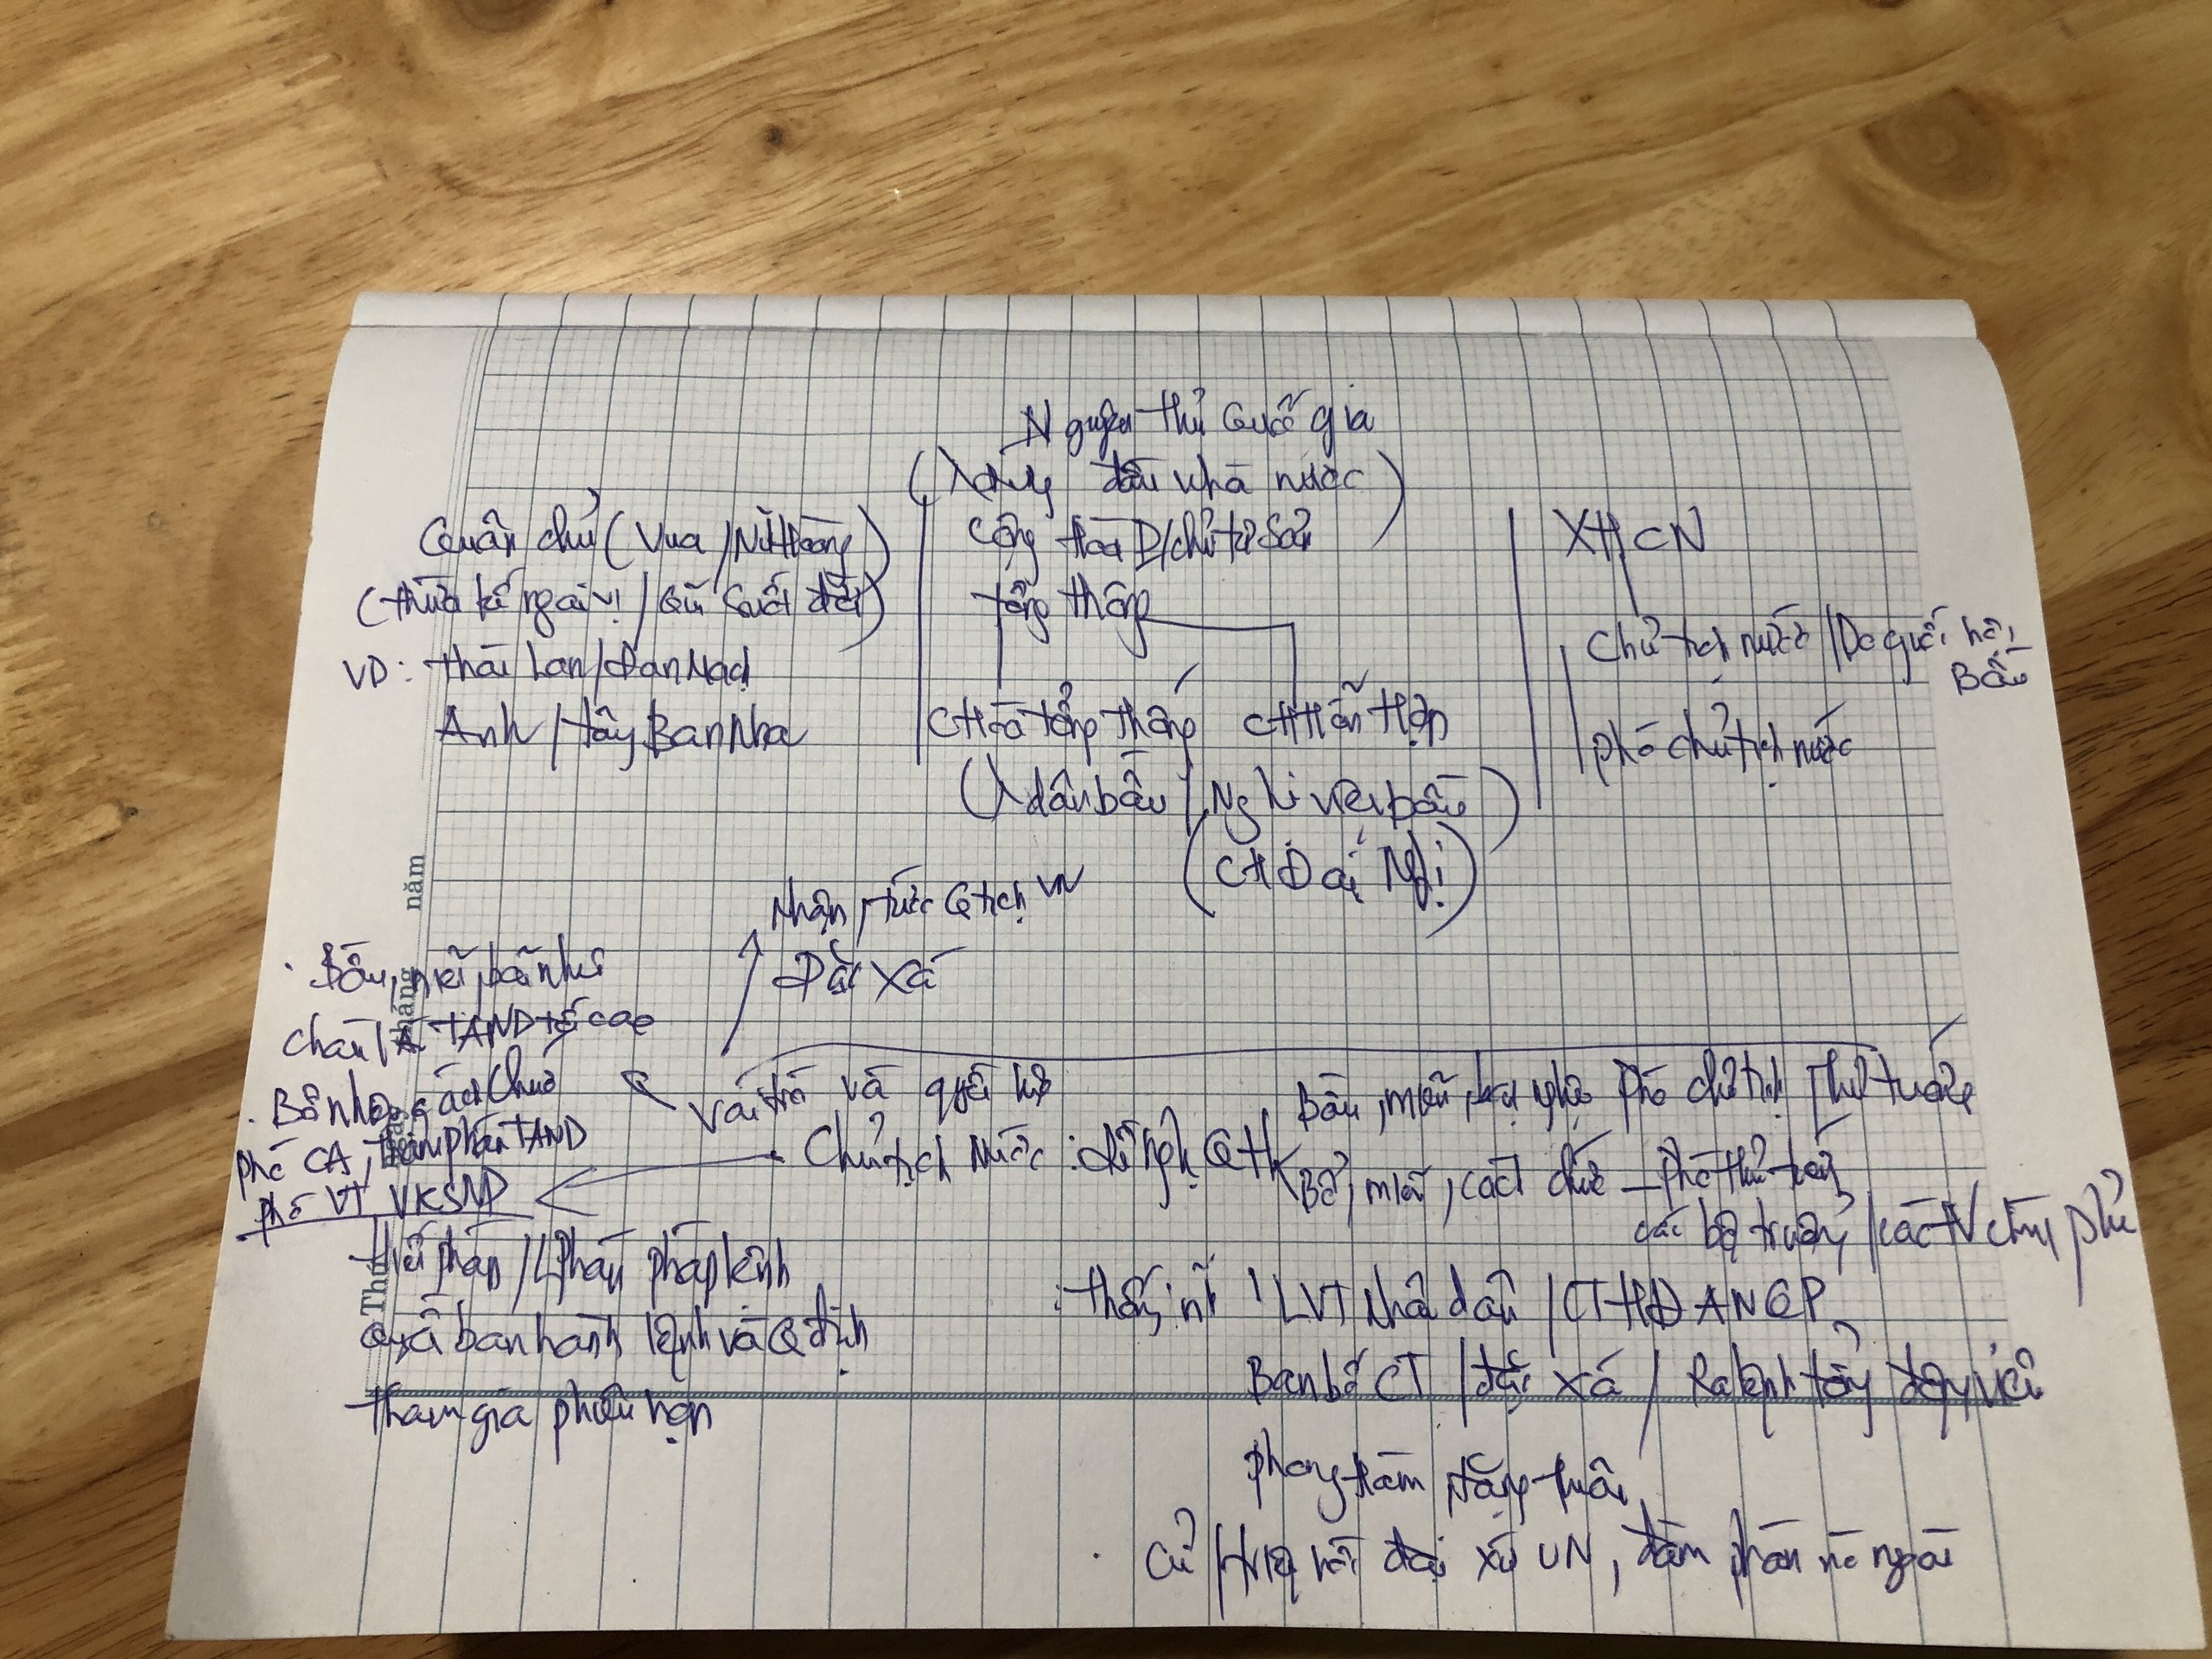 Nguyên thủ Quốc gia
(đứng đầu nhà nước)
Quân chủ (Vua / Nữ Hoàng)
(thừa kế ngai vị / Giữ suốt đời)
VD: Thái Lan / Đan Mạch
Anh / Tây Ban Nha
Cộng hoà D/chủ tư sản
tổng thống
CHoà tổng thống CH Hỗn Hợp
( dân bầu / Nghị viện bầu )
(CH Đại Nghị)
XHCN
Chủ tịch nước / Do quốc hội
Bầu
phó chủ tịch nước
Nhập, tước Q tịch VN
Đặc xá
. Bầu, miễn, bãi nhiệm
Chánh Á TAND tối cao
. Bổ nhiệm, cách chức
phó CA, thẩm phán TAND
phó VT VKSND
Vai trò và quyền hạn
Chủ tịch Nước : đề nghị QH
Bầu, miễn, bãi nhiệm phó chủ tịch, Thủ tướng
Bổ, miễn, cách chức – phó thủ tướng
các bộ trưởng / các TV chính phủ
Hiến pháp / L pháp, pháp lệnh
Quyền ban hành lệnh và Q định
tham gia phiên họp
: thống nh LVT Nhân dân / CTHĐ ANQP
Ban bố CT / đặc xá / Ra lệnh tổng động viên
phong hàm, tặng thưởng
. Cử / triệu hồi đại sứ VN, đàm phán nc ngoài
năm
tháng
Thứ